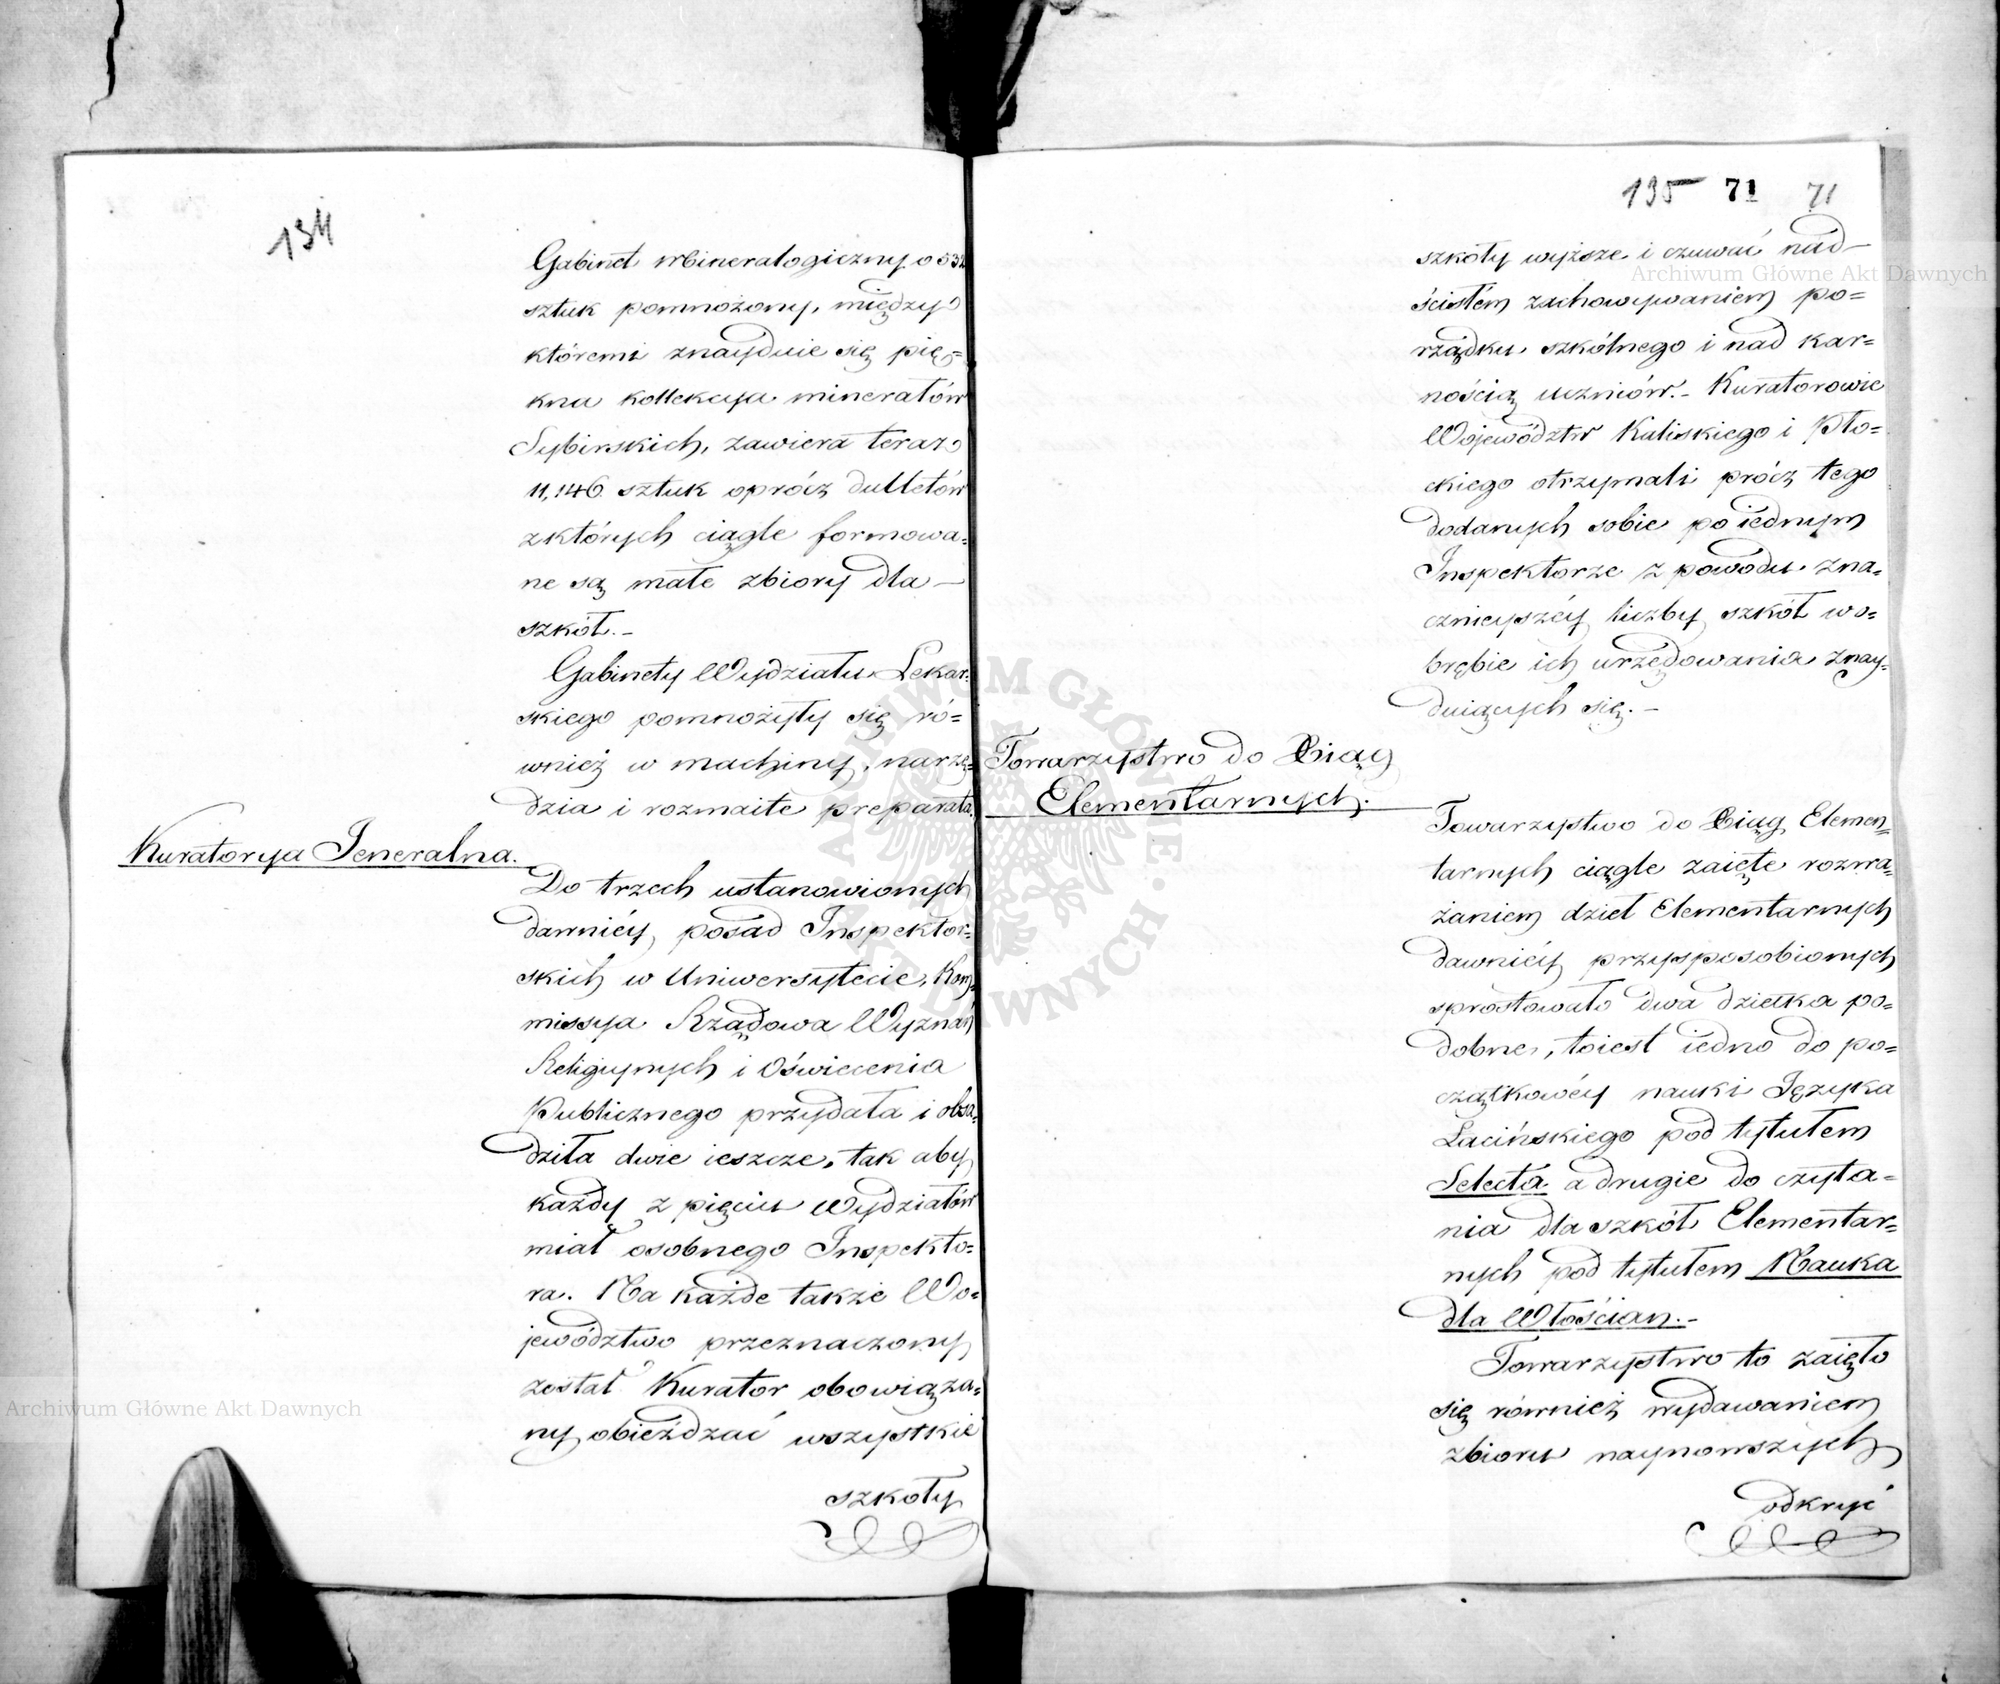 134
Gabinet Mineralogiczny o 532
sztuk pomnożony, między
któremi znayduie się pię=
kna kollekcya minerałów
Sybirskich, zawiera teraz
11,146 sztuk oprócz dulletów
z których ciągle formowa=
ne są małe zbiory dla —
szkół.—
Gabinety Wydziału Lekar=
skiego pomnożyły się ró=
wnież w machiny, narzę=
dzia i rozmaite preparata.
Kuratorya Jeneralna.
Do trzech ustanowionych
dawniéy posad Inspektor=
skich w Uniwersytecie, Kom=
missya Rządowa Wyznań
Religiynych i Oświecenia
Publicznego przydała i obsa=
dziła dwie ieszcze, tak aby
każdy z pięciu Wydziałów
miał osobnego Inspekto=
ra. Na każde także Wo=
jewództwo przeznaczony
został Kurator obowiąza=
ny obieżdzać wszystkie
szkoły
195 71 71
szkoły wyższe i czuwać nad —
ścisłém zachowywaniem po=
rządku szkólnego i nad kar=
nością uczniów.— Kuratorowie
Województw Kaliskiego i Pło=
ckiego otrzymali prócz tego
dodanych sobie po iednym
Inspektorze z powodu zna=
cznieyszéy liczby szkół wo=
brębie ich urzędowania znay=
duiących się.—
Towarzystwo do Xiąg
Elementarnych.
Towarzystwo do Xiąg Elemen=
tarnych ciągle zaięte rozwa=
żaniem dzieł Elementarnych
dawniéy przysposobionych
sprostowało dwa dziełka po=
dobne, toiest iedno do po=
czątkowéy nauki Języka
Łacińskiego pod tytułem
Selecta a drugie do czyta=
nia dla szkół Elementar=
nych pod tytułem Nauka
dla Włościan.—
Towarzystwo to zaięło
się również wydawaniem
zbioru naynowszych
odkryć
Archiwum Główne Akt Dawnych
Archiwum Główne Akt Dawnych
ARCHIWUM GŁÓWNE AKT DAWNYCH